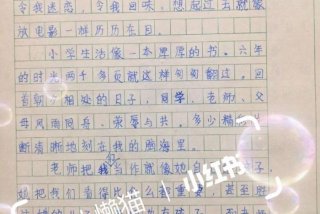 令我迷恋,令我回味,想起过去就像
放电影一样历历在目。
小学生活像一本厚厚的书。六年
的时光两千多页就这样匆匆翻过。回
首朝夕相处的日子,同学、老师、父
母风雨同舟、荣辱与共。多少精
断清晰地刻在我的脑海里。
老师把我当作就像她自
她把我们看得比什么都重要,甚至胜
懒猫
小红书